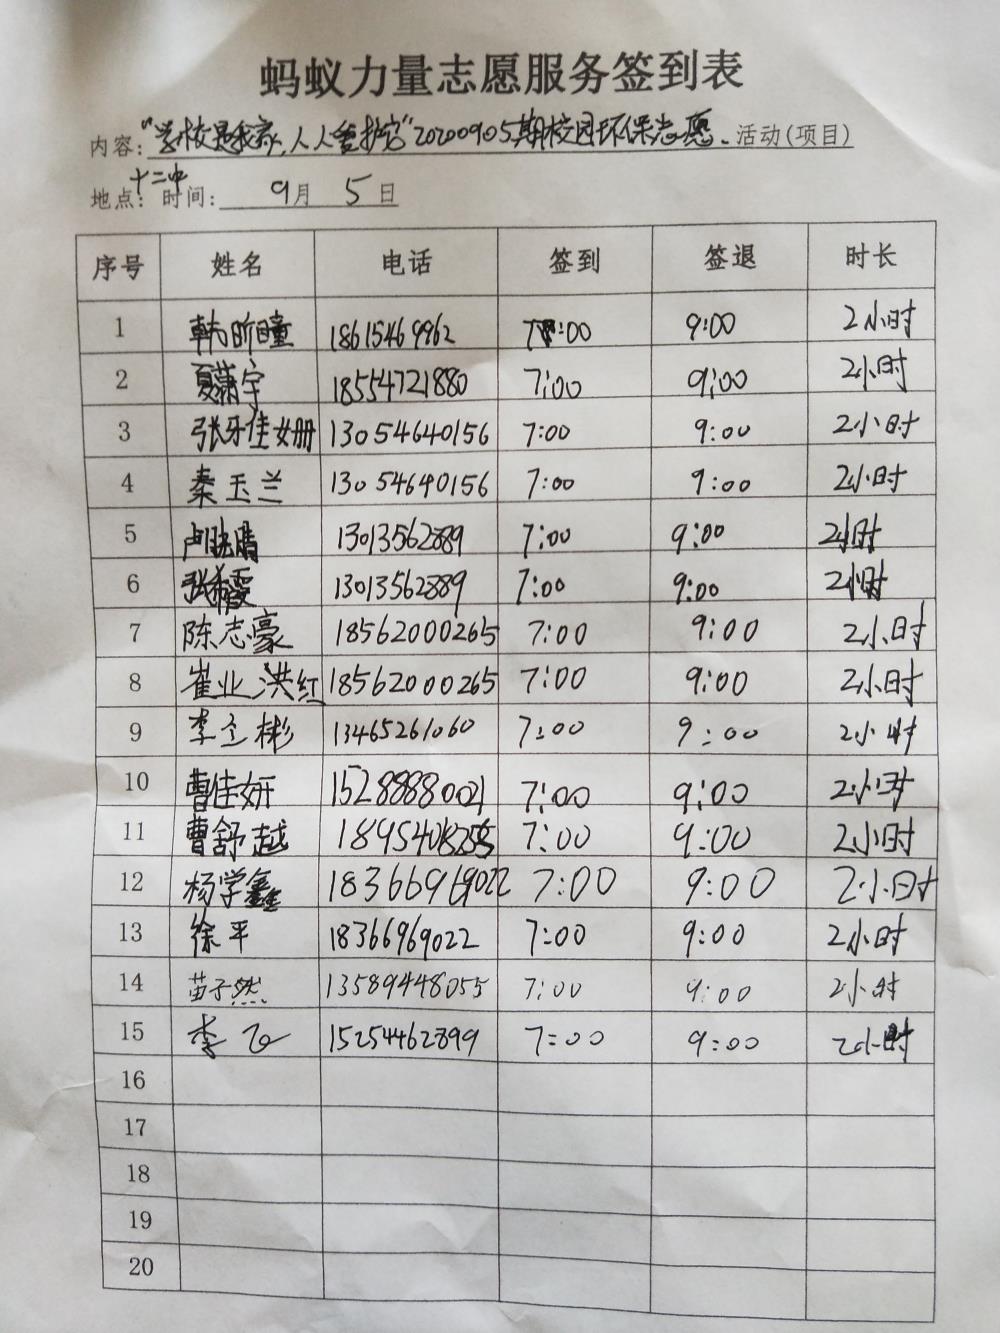 蚂蚁力量志愿服务签到表
内容:"学校是我家,人人爱护它"20200905期校园环保志愿、活动(项目)
地点:十二中 时间: 9月 5日
序号 姓名 电话 签到 签退 时长
1 韩昕瞳 18615469962 7:00 9:00 2小时
2 夏潇宇 18554721880 7:00 9:00 2小时
3 张牙佳妍 13054640156 7:00 9:00 2小时
4 秦玉兰 13054640156 7:00 9:00 2小时
5 卢晓晴 13013562889 7:00 9:00 2小时
6 张希雯 13013562889 7:00 9:00 2小时
7 陈志豪 18562000265 7:00 9:00 2小时
8 崔业洪红 18562000265 7:00 9:00 2小时
9 李立彬 13465261060 7:00 9:00 2小时
10 曹佳妍 15288880021 7:00 9:00 2小时
11 曹舒越 18954088255 7:00 9:00 2小时
12 杨学鑫 18366969022 7:00 9:00 2小时
13 徐平 18366969022 7:00 9:00 2小时
14 苗子然 13589448055 7:00 9:00 2小时
15 李 15254462899 7:00 9:00 2小时
16
17
18
19
20